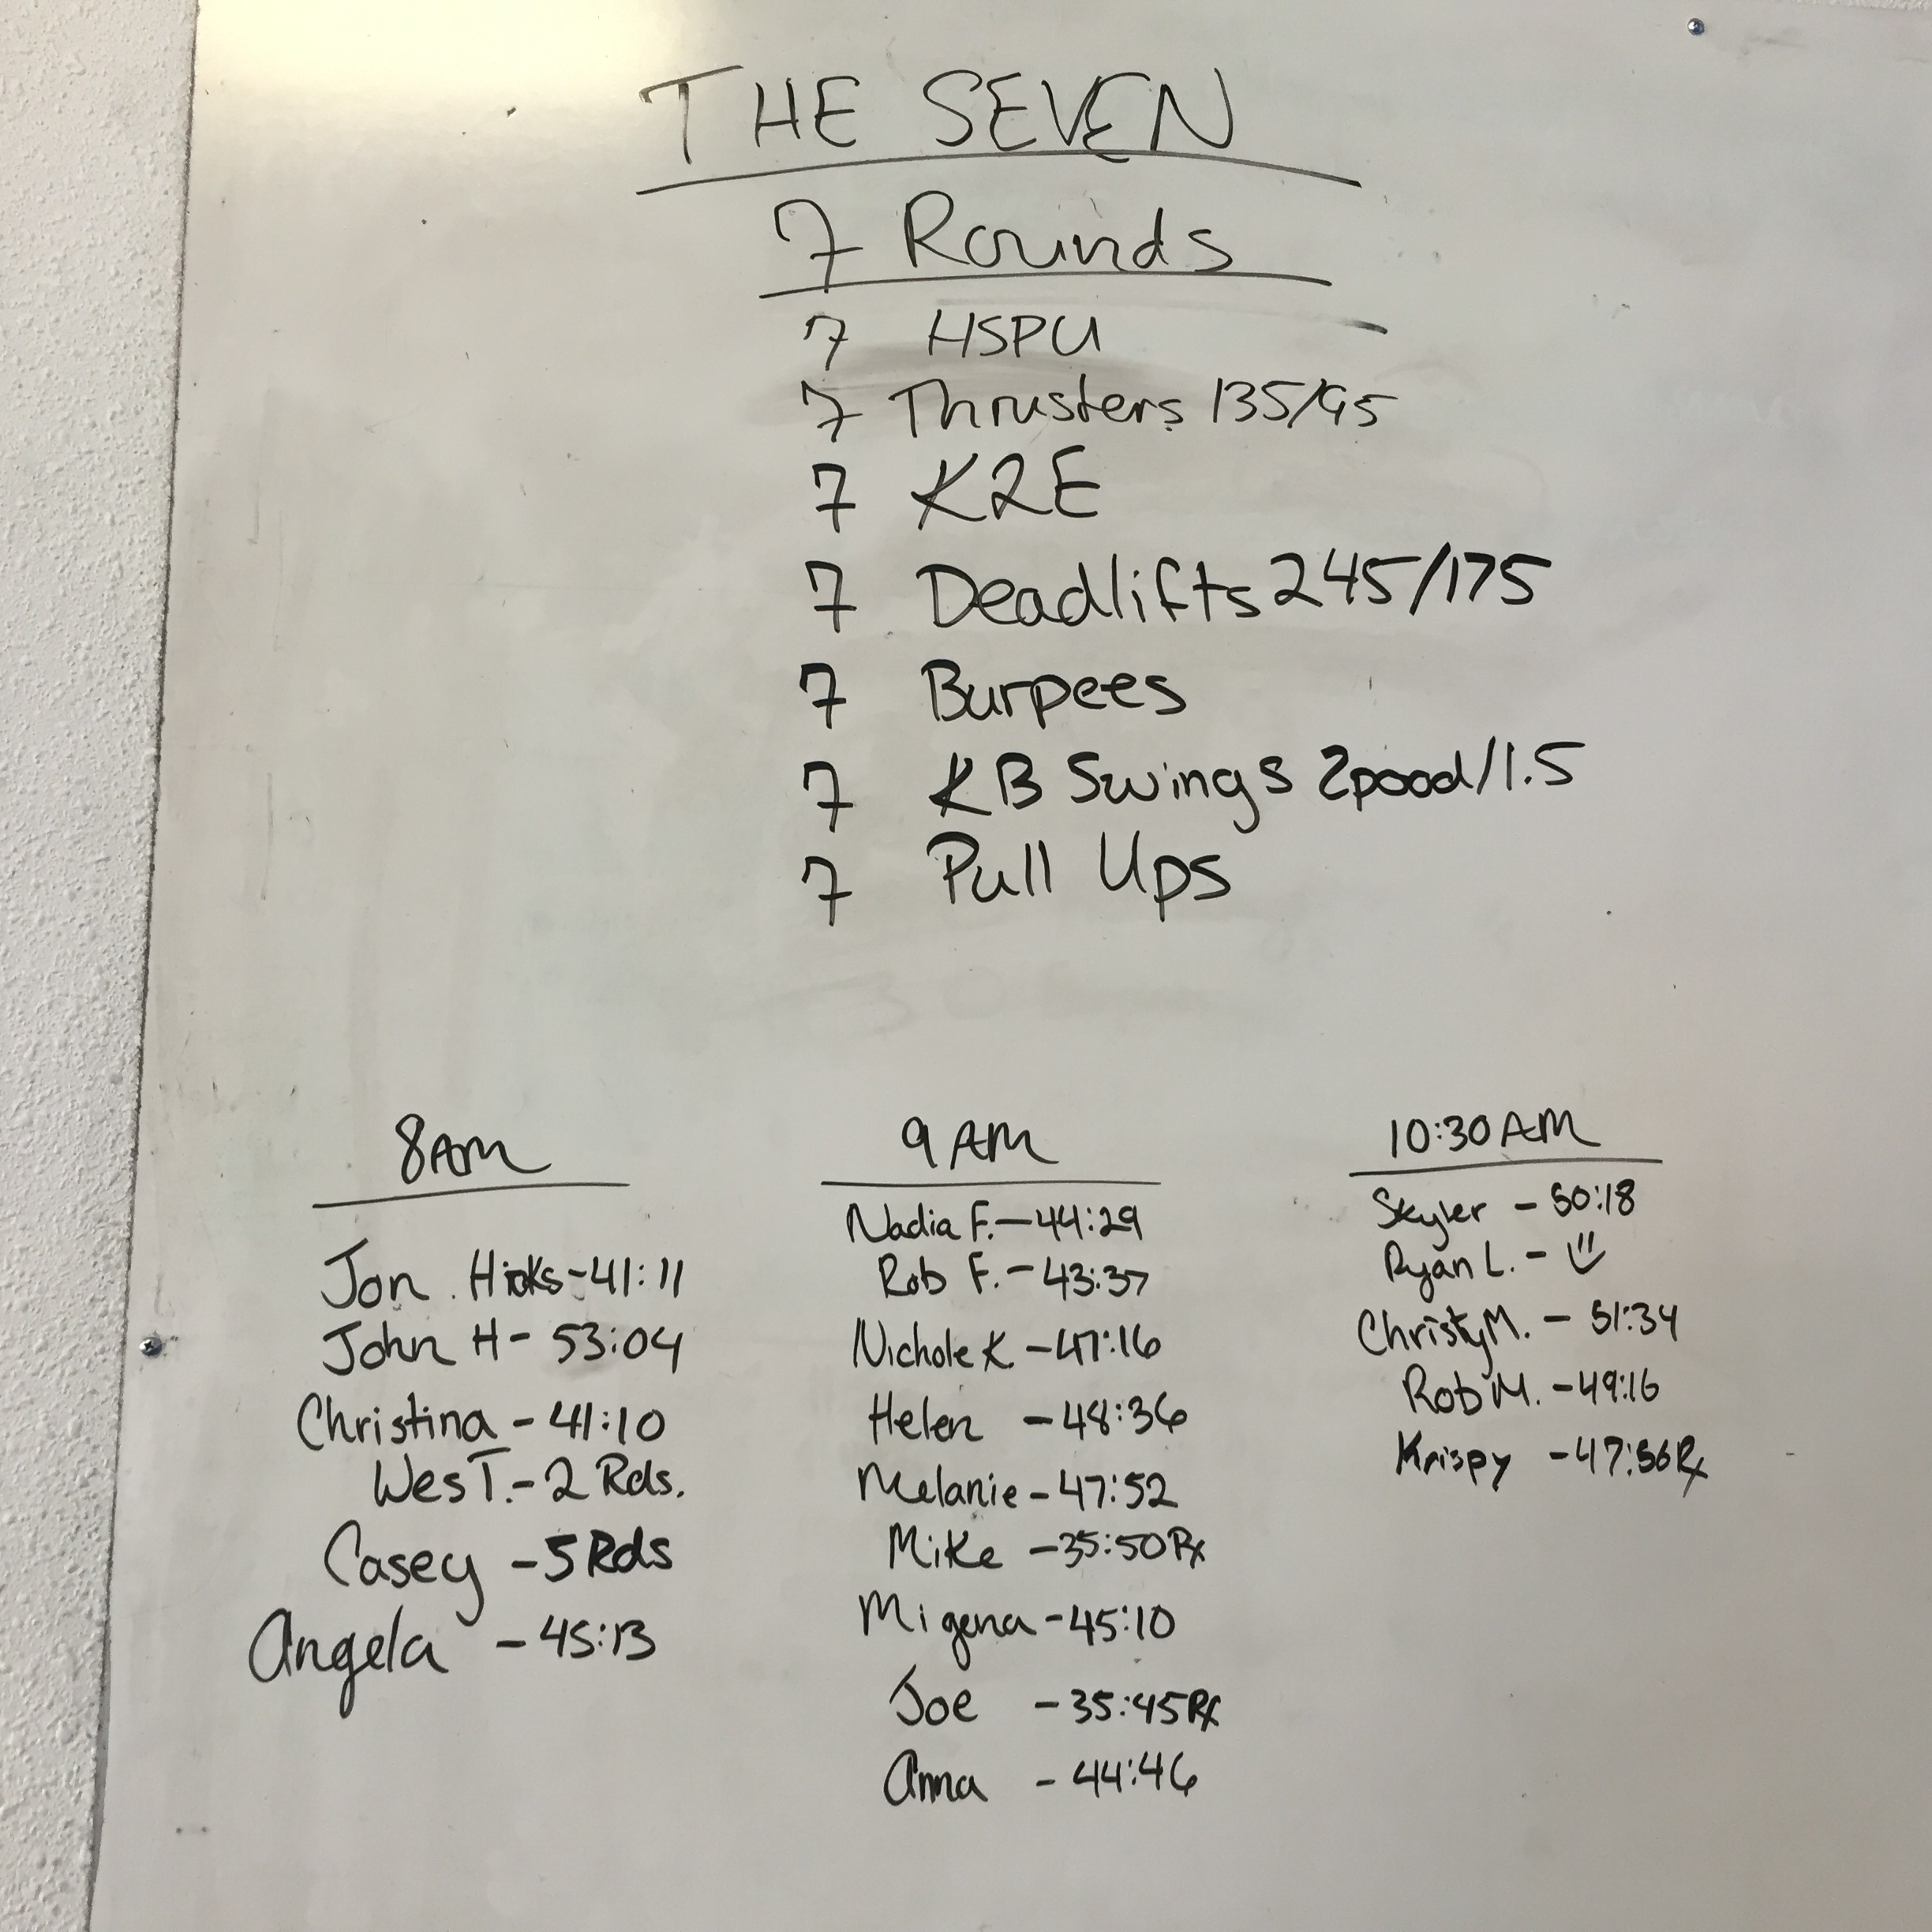 THE SEVEN
7 Rounds
7 HSPU
7 Thrusters 135/95
7 K2E
7 Deadlifts 245/175
7 Burpees
7 KB Swings 2pood/1.5
7 Pull Ups
8AM
Jon Hicks - 41:11
John H - 53:04
Christina - 41:10
Wes T. - 2 Rds.
Casey - 5 Rds
Angela - 45:13
9 AM
Nadia F. - 44:29
Rob F. - 43:37
Nichole K - 47:16
Helen - 48:36
Melanie - 47:52
Mike - 35:50 Rx
Migena - 45:10
Joe - 35:45 Rx
Anna - 44:46
10:30 AM
Skyler - 50:18
Ryan L. -
Christy M. - 51:34
Rob M. - 49:16
Krispy - 47:56 Rx